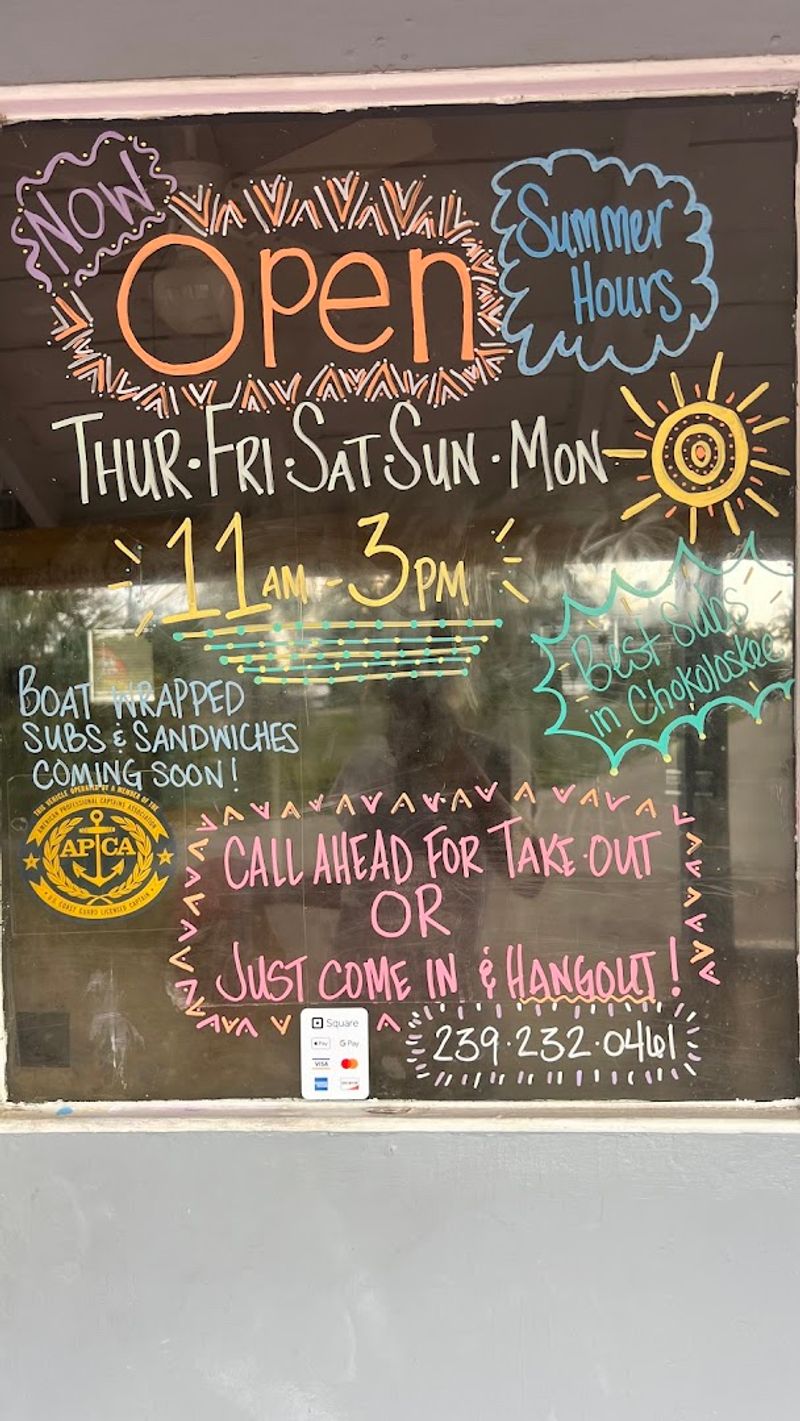 NOW
Open
Summer
Hours
THUR·FRI·SAT·SUN·MON
11AM-3PM
Best Subs
in Chokoloskee
BOAT WRAPPED
SUBS & SANDWICHES
COMING SOON!
THIS VEHICLE OPERATED BY A MEMBER OF THE
AMERICAN PROFESSIONAL CAPTAINS ASSOCIATION
APCA
U.S. COAST GUARD LICENSED CAPTAIN
CALL AHEAD FOR TAKE·OUT
OR
JUST COME IN & HANGOUT!
239·232·0461
Square
Pay
G Pay
VISA